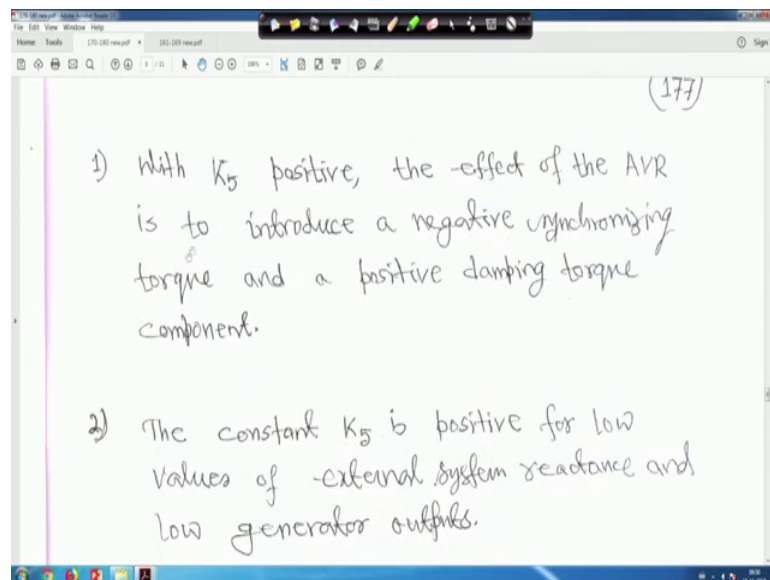 170-180 new.pdf - Adobe Acrobat Reader DC
File Edit View Window Help
Home Tools 170-180 new.pdf × 161-169 new.pdf Sign
(177)
1) With K5 positive, the effect of the AVR
is to introduce a negative synchronizing
torque and a positive damping torque
component.
2) The constant K5 is positive for low
values of external system reactance and
low generator outputs.